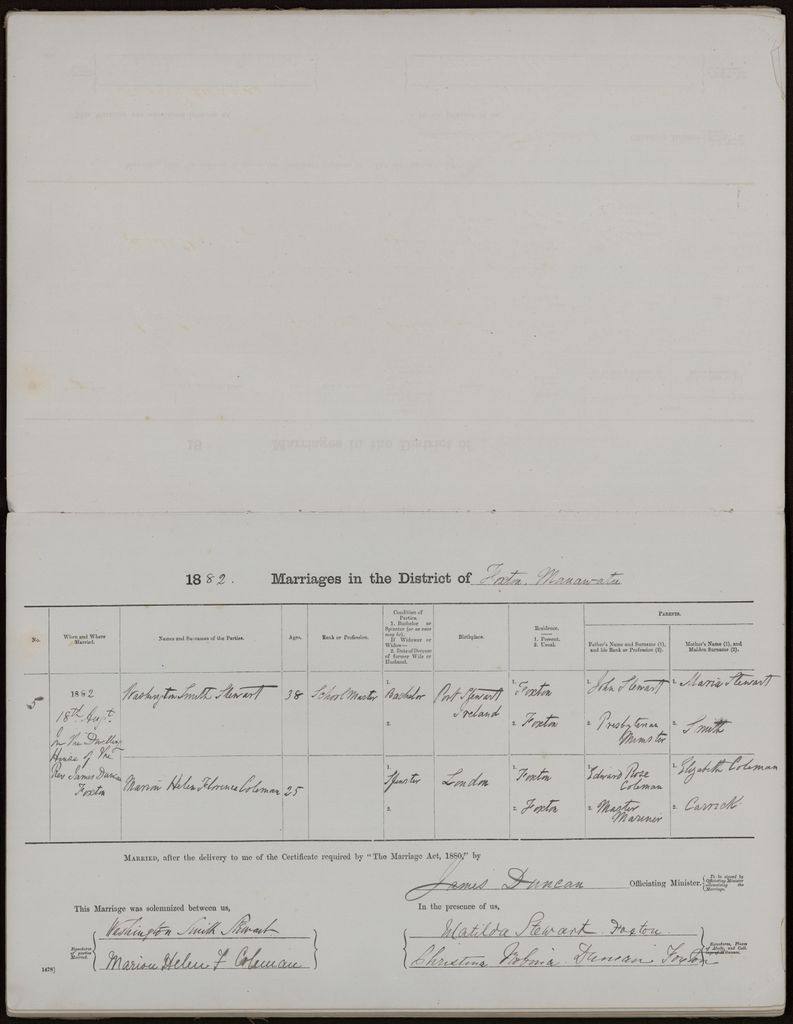 1882. Marriages in the District of Foxton, Manawatu
No.
When and Where Married.
Names and Surnames of the Parties.
Ages.
Rank or Profession.
Condition of Parties.
1. Bachelor or Spinster (or as case may be).
If Widower or Widow—
2. Date of Decease of former Wife or Husband.
Birthplace.
Residence.
1. Present.
2. Usual.
PARENTS.
Father's Name and Surname (1), and his Rank or Profession (2).
Mother's Name (1), and Maiden Surname (2).
5
1882
18th Augt.
In the Dwelling
House of the
Rev James Duncan
Foxton
Washington Smith Stewart
38
School Master
1. Bachelor
2.
Port Stewart
Ireland
1. Foxton
2. Foxton
1. John Stewart
2. Presbyterian
Minister
1. Maria Stewart
2. Smith
Marion Helen Florence Coleman
25
1. Spinster
2.
London
1. Foxton
2. Foxton
1. Edward Rose
Coleman
2. Master
Mariner
1. Elizabeth Coleman
2. Carrick
MARRIED, after the delivery to me of the Certificate required by "The Marriage Act, 1880," by
James Duncan Officiating Minister.
To be signed by Officiating Minister solemnizing the Marriage.
This Marriage was solemnized between us,
Washington Smith Stewart
Marion Helen F Coleman
Signatures of parties Married.
In the presence of us,
Matilda Stewart. Foxton.
Christina Duncan Foxton
1478]